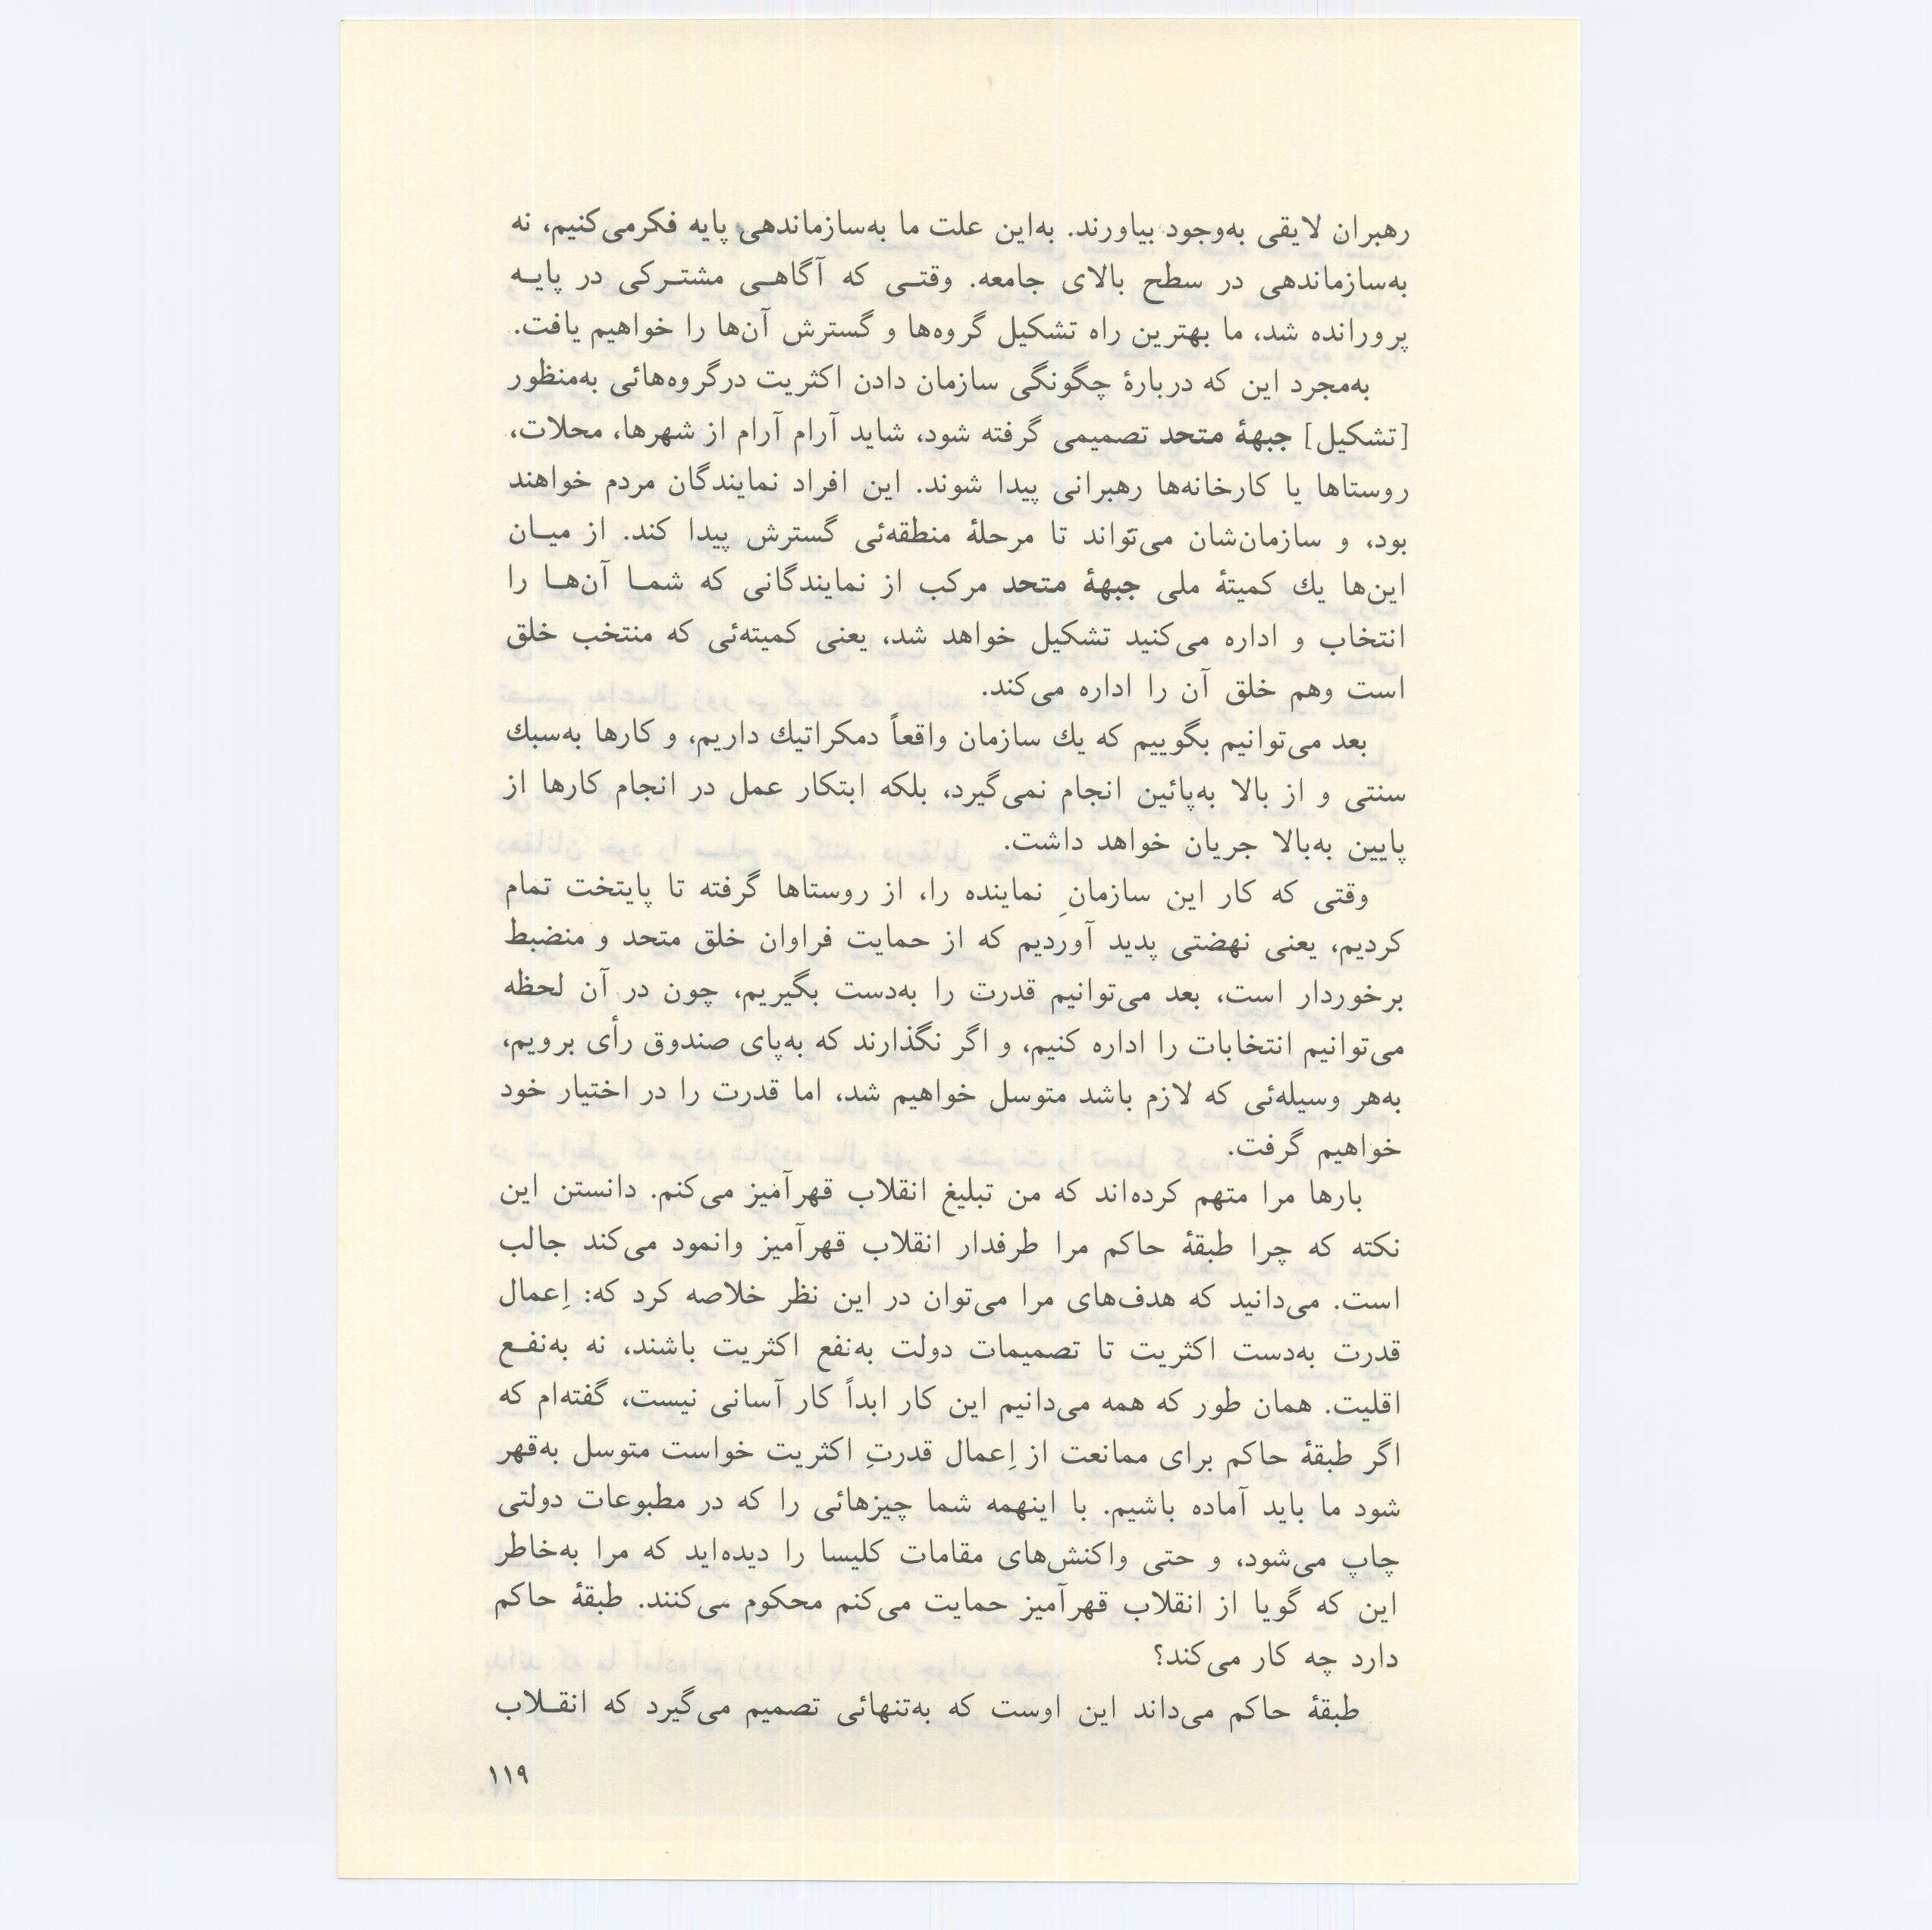 رهبران لایقی به‌وجود بیاورند. به‌این علت ما به‌سازماندهی پایه فکرمی‌کنیم، نه
به‌سازماندهی در سطح بالای جامعه. وقتـی که آگاهـی مشتـرکی در پایـه
پرورانده شد، ما بهترین راه تشکیل گروه‌ها و گسترش آن‌ها را خواهیم یافت.
به‌مجرد این که دربارهٔ چگونگی سازمان دادن اکثریت درگروه‌هائی به‌منظور
[تشکیل] جبههٔ متحد تصمیمی گرفته شود، شاید آرام آرام از شهرها، محلات،
روستاها یا کارخانه‌ها رهبرانی پیدا شوند. این افراد نمایندگان مردم خواهند
بود، و سازمان‌شان می‌تواند تا مرحلهٔ منطقه‌ئی گسترش پیدا کند. از میـان
این‌ها یك کمیتهٔ ملی جبههٔ متحد مرکب از نمایندگانی که شمـا آن‌هـا را
انتخاب و اداره می‌کنید تشکیل خواهد شد، یعنی کمیته‌ئی که منتخب خلق
است وهم خلق آن را اداره می‌کند.
بعد می‌توانیم بگوییم که یك سازمان واقعاً دمکراتیك داریم، و کارها به‌سبك
سنتی و از بالا به‌پائین انجام نمی‌گیرد، بلکه ابتکار عمل در انجام کارها از
پایین به‌بالا جریان خواهد داشت.
وقتی که کار این سازمانِ نماینده را، از روستاها گرفته تا پایتخت تمام
کردیم، یعنی نهضتی پدید آوردیم که از حمایت فراوان خلق متحد و منضبط
برخوردار است، بعد می‌توانیم قدرت را به‌دست بگیریم، چون در آن لحظه
می‌توانیم انتخابات را اداره کنیم، و اگر نگذارند که به‌پای صندوق رأی برویم،
به‌هر وسیله‌ئی که لازم باشد متوسل خواهیم شد، اما قدرت را در اختیار خود
خواهیم گرفت.
بارها مرا متهم کرده‌اند که من تبلیغ انقلاب قهرآمیز می‌کنم. دانستن این
نکته که چرا طبقهٔ حاکم مرا طرفدار انقلاب قهرآمیز وانمود می‌کند جالب
است. می‌دانید که هدف‌های مرا می‌توان در این نظر خلاصه کرد که: اِعمال
قدرت به‌دست اکثریت تا تصمیمات دولت به‌نفع اکثریت باشند، نه به‌نفـع
اقلیت. همان طور که همه می‌دانیم این کار ابداً کار آسانی نیست، گفته‌ام که
اگر طبقهٔ حاکم برای ممانعت از اِعمال قدرتِ اکثریت خواست متوسل به‌قهر
شود ما باید آماده باشیم. با اینهمه شما چیزهائی را که در مطبوعات دولتی
چاپ می‌شود، و حتی واکنش‌های مقامات کلیسا را دیده‌اید که مرا به‌خاطر
این که گویا از انقلاب قهرآمیز حمایت می‌کنم محکوم می‌کنند. طبقهٔ حاکم
دارد چه کار می‌کند؟
طبقهٔ حاکم می‌داند این اوست که به‌تنهائی تصمیم می‌گیرد که انقـلاب
۱۱۹